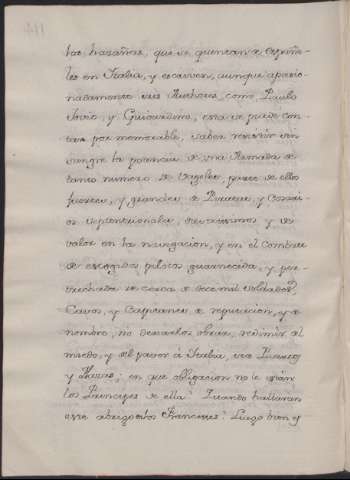 las hazañas, que se quentan de Españo-
les en Italia, y escriven, aunque apasio-
nadamente sus Authores, como Paulo
Jovio, y Guiciardino, esta se puede con-
tar por memorable, saber resistir sin
sangre la potencia de una Armada de
tanto numero de Vageles, parte de ellos
fuertes, y grandes de Guerra, y Cosarios
y de
valor en la navegacion, y en el Combate
de escogidos pilotos guarnecida, y per-
trechada de cerca de doce mil soldados,
Cavos, y Capitanes de reputacion, y de
nombre, no dexarlos obrar, redimir al
miedo, y del pavor à Italia, sus Puertos
y Plazas, en que obligacion no le están
los Principes de ella? Quando hallaran
este abrigo en los Franceses? Luego bien y